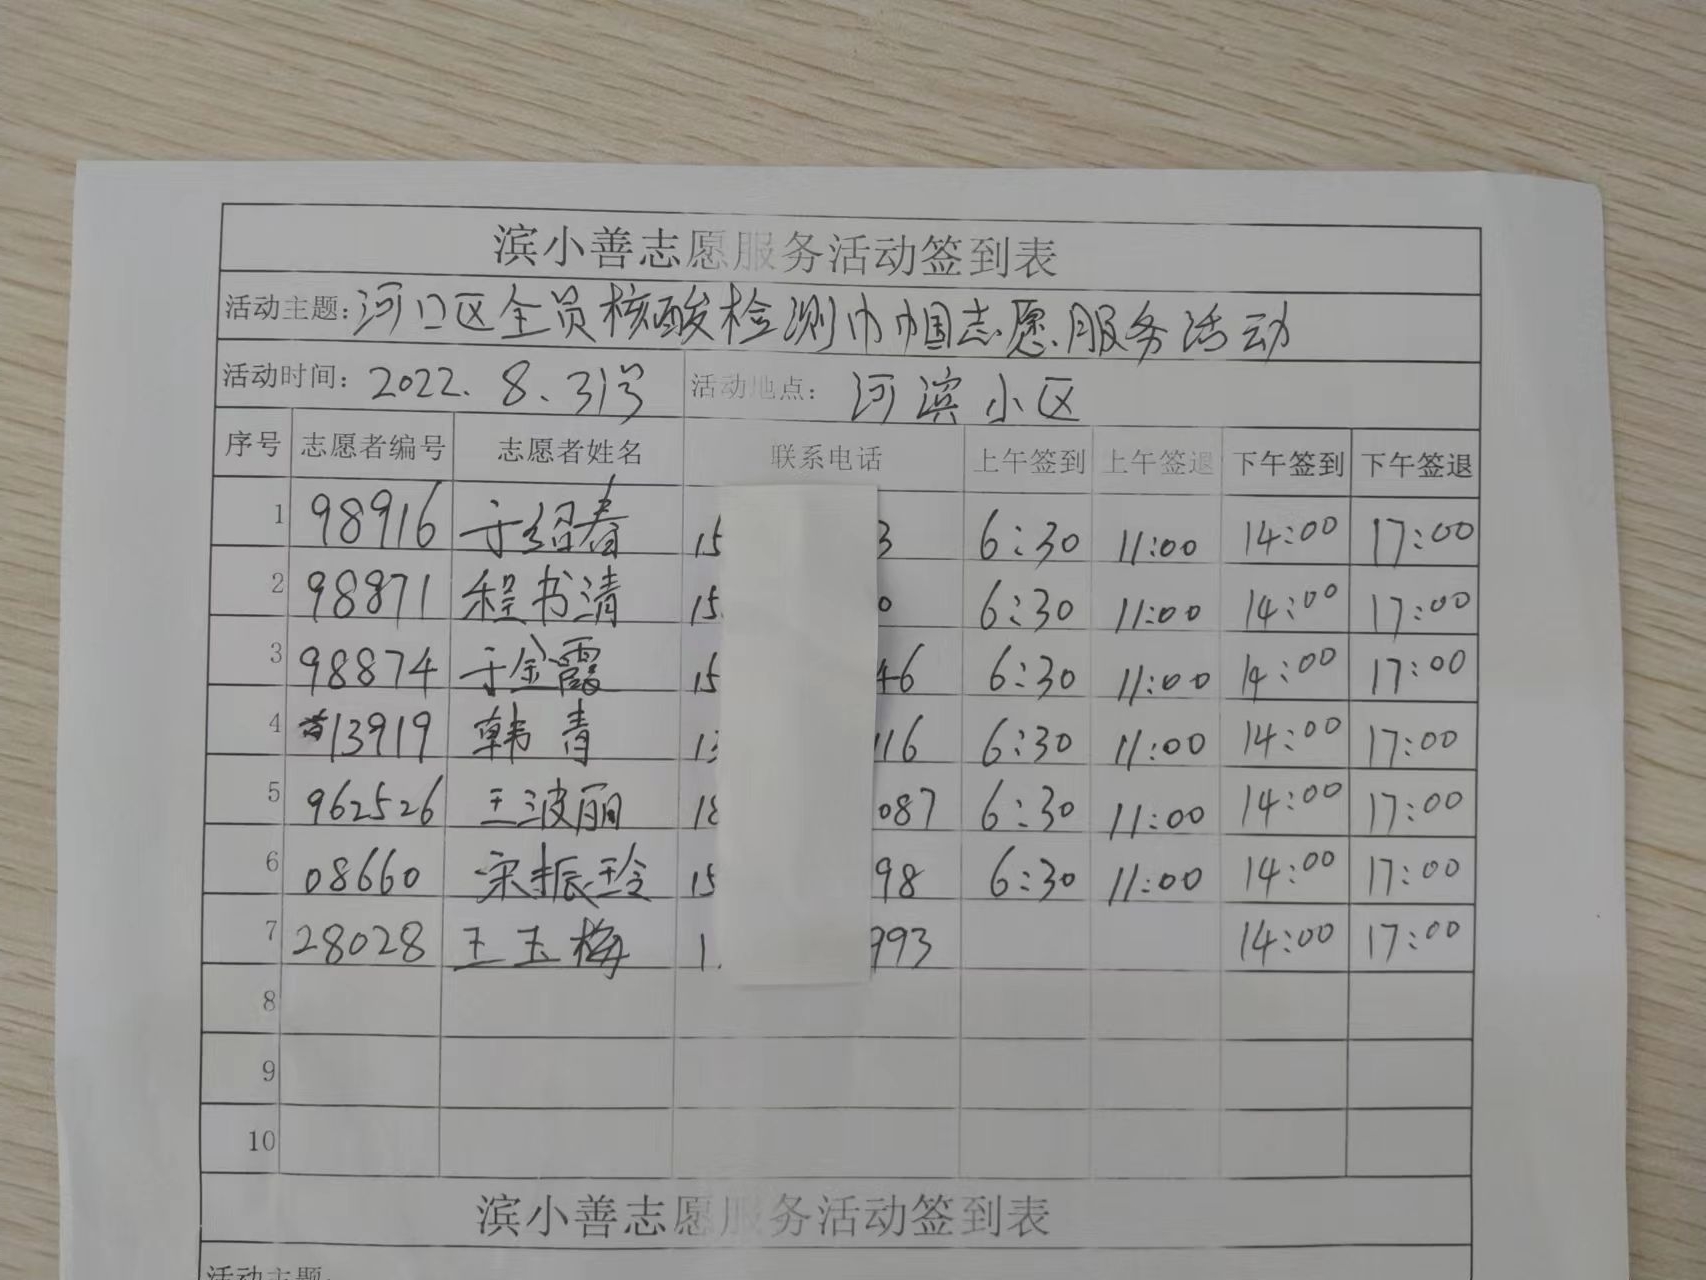 滨小善志愿服务活动签到表
活动主题：河口区全员核酸检测巾帼志愿服务活动
活动时间：2022.8.31号 活动地点：河滨小区
序号 志愿者编号 志愿者姓名 联系电话 上午签到 上午签退 下午签到 下午签退
1 98916 于绍春 15 3 6:30 11:00 14:00 17:00
2 98871 程书清 15 0 6:30 11:00 14:00 17:00
3 98874 于金霞 15 46 6:30 11:00 14:00 17:00
4 13919 韩青 13 116 6:30 11:00 14:00 17:00
5 962526 王波丽 18 087 6:30 11:00 14:00 17:00
6 08660 宋振玲 15 98 6:30 11:00 14:00 17:00
7 28028 王玉梅 1 993 14:00 17:00
8
9
10
滨小善志愿服务活动签到表
活动主题：